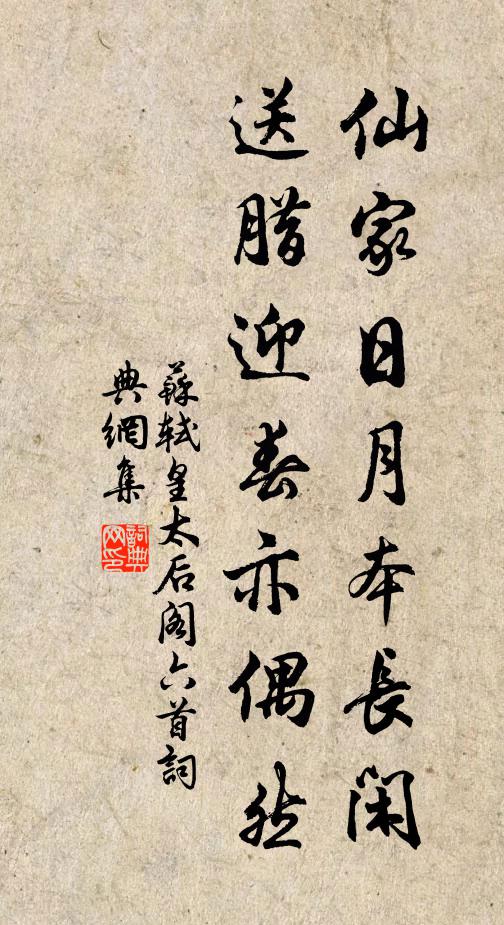 仙家日月本長閑
送腊迎春亦偶然
蘇軾皇太后閣六首詞
典網集
詞典
网印